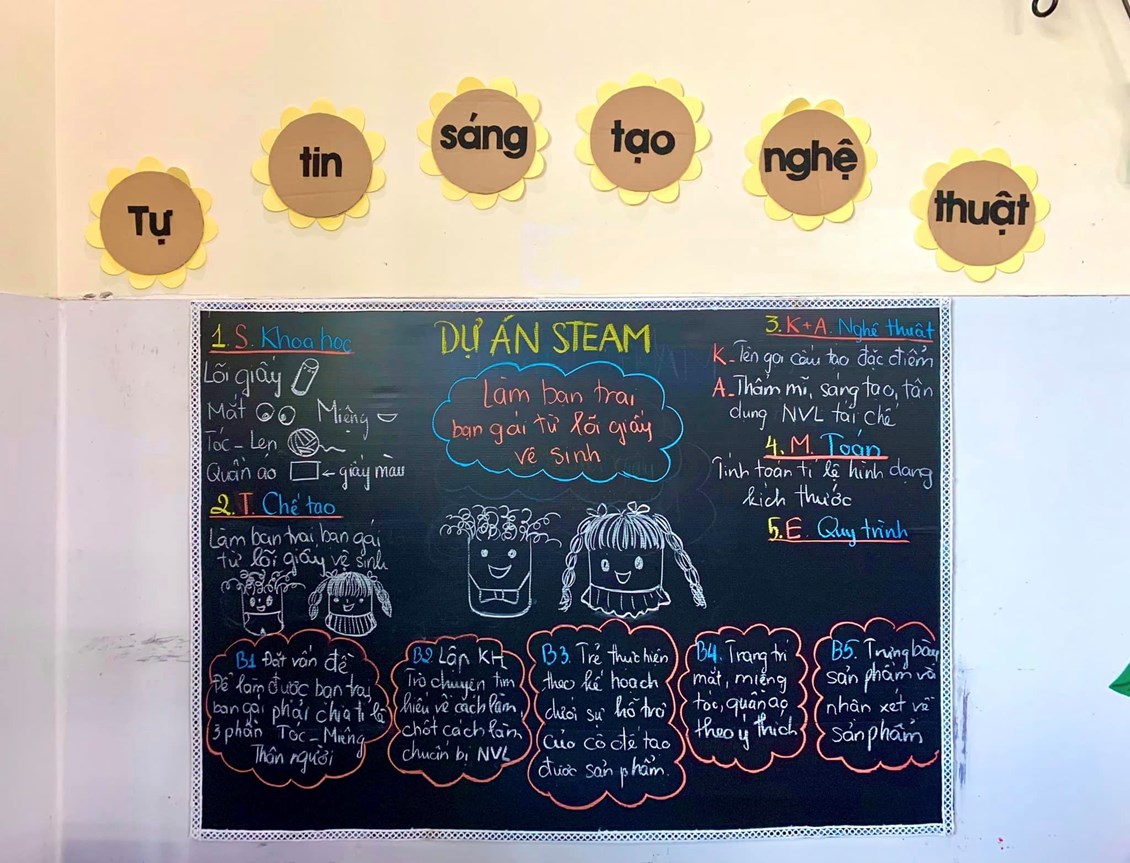 Tự tin sáng tạo nghệ thuật
DỰ ÁN STEAM
Làm bạn trai
bạn gái từ lõi giấy
vệ sinh
1. S. Khoa học
Lõi giấy
Mắt Miệng
Tóc - Len
Quần áo ← giấy màu
2. T. Chế tạo
Làm bạn trai bạn gái
từ lõi giấy vệ sinh
3. K+A. Nghệ thuật
K - Tên gọi cấu tạo đặc điểm
A - Thẩm mĩ, sáng tạo, tận
dụng NVL tái chế
4. M. Toán
Tính toán tỉ lệ hình dạng
kích thước
5. E. Quy trình
B1 Đặt vấn đề
Để làm được bạn trai
bạn gái phải chia tỉ lệ
3 phần Tóc - Miệng
Thân người
B2. Lập KH
Trò chuyện tìm
hiểu về cách làm
chốt cách làm
chuẩn bị NVL
B3. Trẻ thực hiện
theo kế hoạch
dưới sự hỗ trợ
của cô để tạo
được sản phẩm.
B4. Trang trí
mắt, miệng
tóc, quần áo
theo ý thích
B5. Trưng bày
sản phẩm và
nhận xét về
sản phẩm